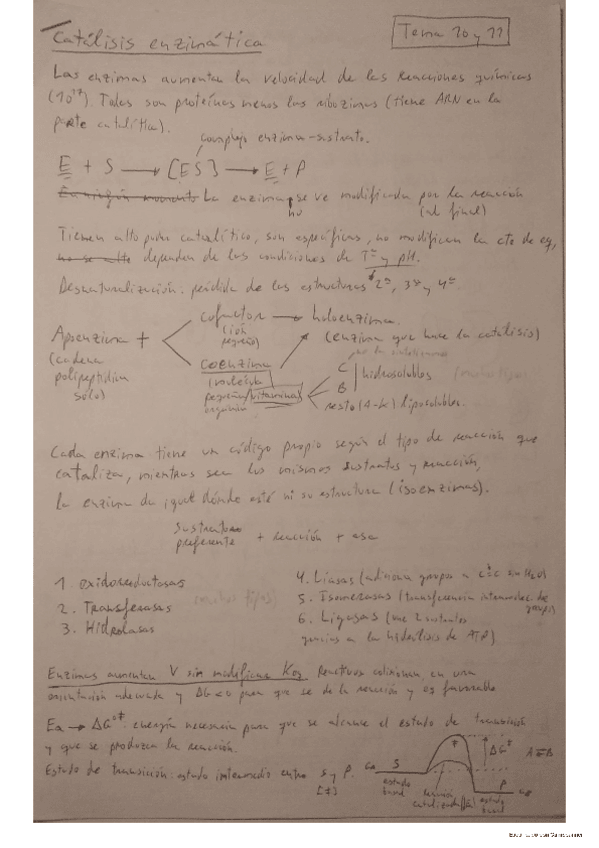 Catálisis enzimática
Tema 10 y 11
Las enzimas aumentan la velocidad de las reacciones químicas
(10¹⁷). Todas son proteínas menos las ribozimas (tiene ARN en la
parte catalítica).
complejo enzima-sustrato.
E + S → [ES] → E + P
La enzima no se ve modificada por la reacción
(al final)
Tienen alto poder catalítico, son específicas, no modifican la cte de eq,
dependen de las condiciones de Tª y pH.
Desnaturalización: pérdida de las estructuras 2ª, 3ª y 4ª.
Apoenzima +
(cadena
polipeptídica
sólo)
cofactor → holoenzima.
(ión
pequeño)
(enzima que hace la catálisis)
coenzima
(molécula
pequeña
orgánica
vitaminas
C
B
hidrosolubles
resto (A-K) liposolubles.
Cada enzima tiene un código propio según el tipo de reacción que
cataliza, mientras sea los mismos sustratos y reacción,
la enzima da igual dónde esté ni su estructura (isoenzimas).
Sustrato
preferente + reacción + asa
1 oxidorreductasas
2. Transferasas
3. Hidrolasas
4. Liasas (adiciona grupos a C=C sin H₂O)
5. Isomerasas (transferencia intramolec de
grupos)
6. Ligasas (une 2 sustratos
gracias a la hidrólisis de ATP)
Enzimas aumentan V sin modificar Keq. Reactivos colisionan, en una
orientación adecuada y ΔG<0 para que se de la reacción y es favorable
Ea → ΔG°‡: energía necesaria para que se alcance el estado de transición
y que se produzca la reacción.
Estado de transición: estado intermedio entre S y P.
[‡]
S
‡
ΔG‡
P
estado
basal
reacción
catalizada
estado
basal